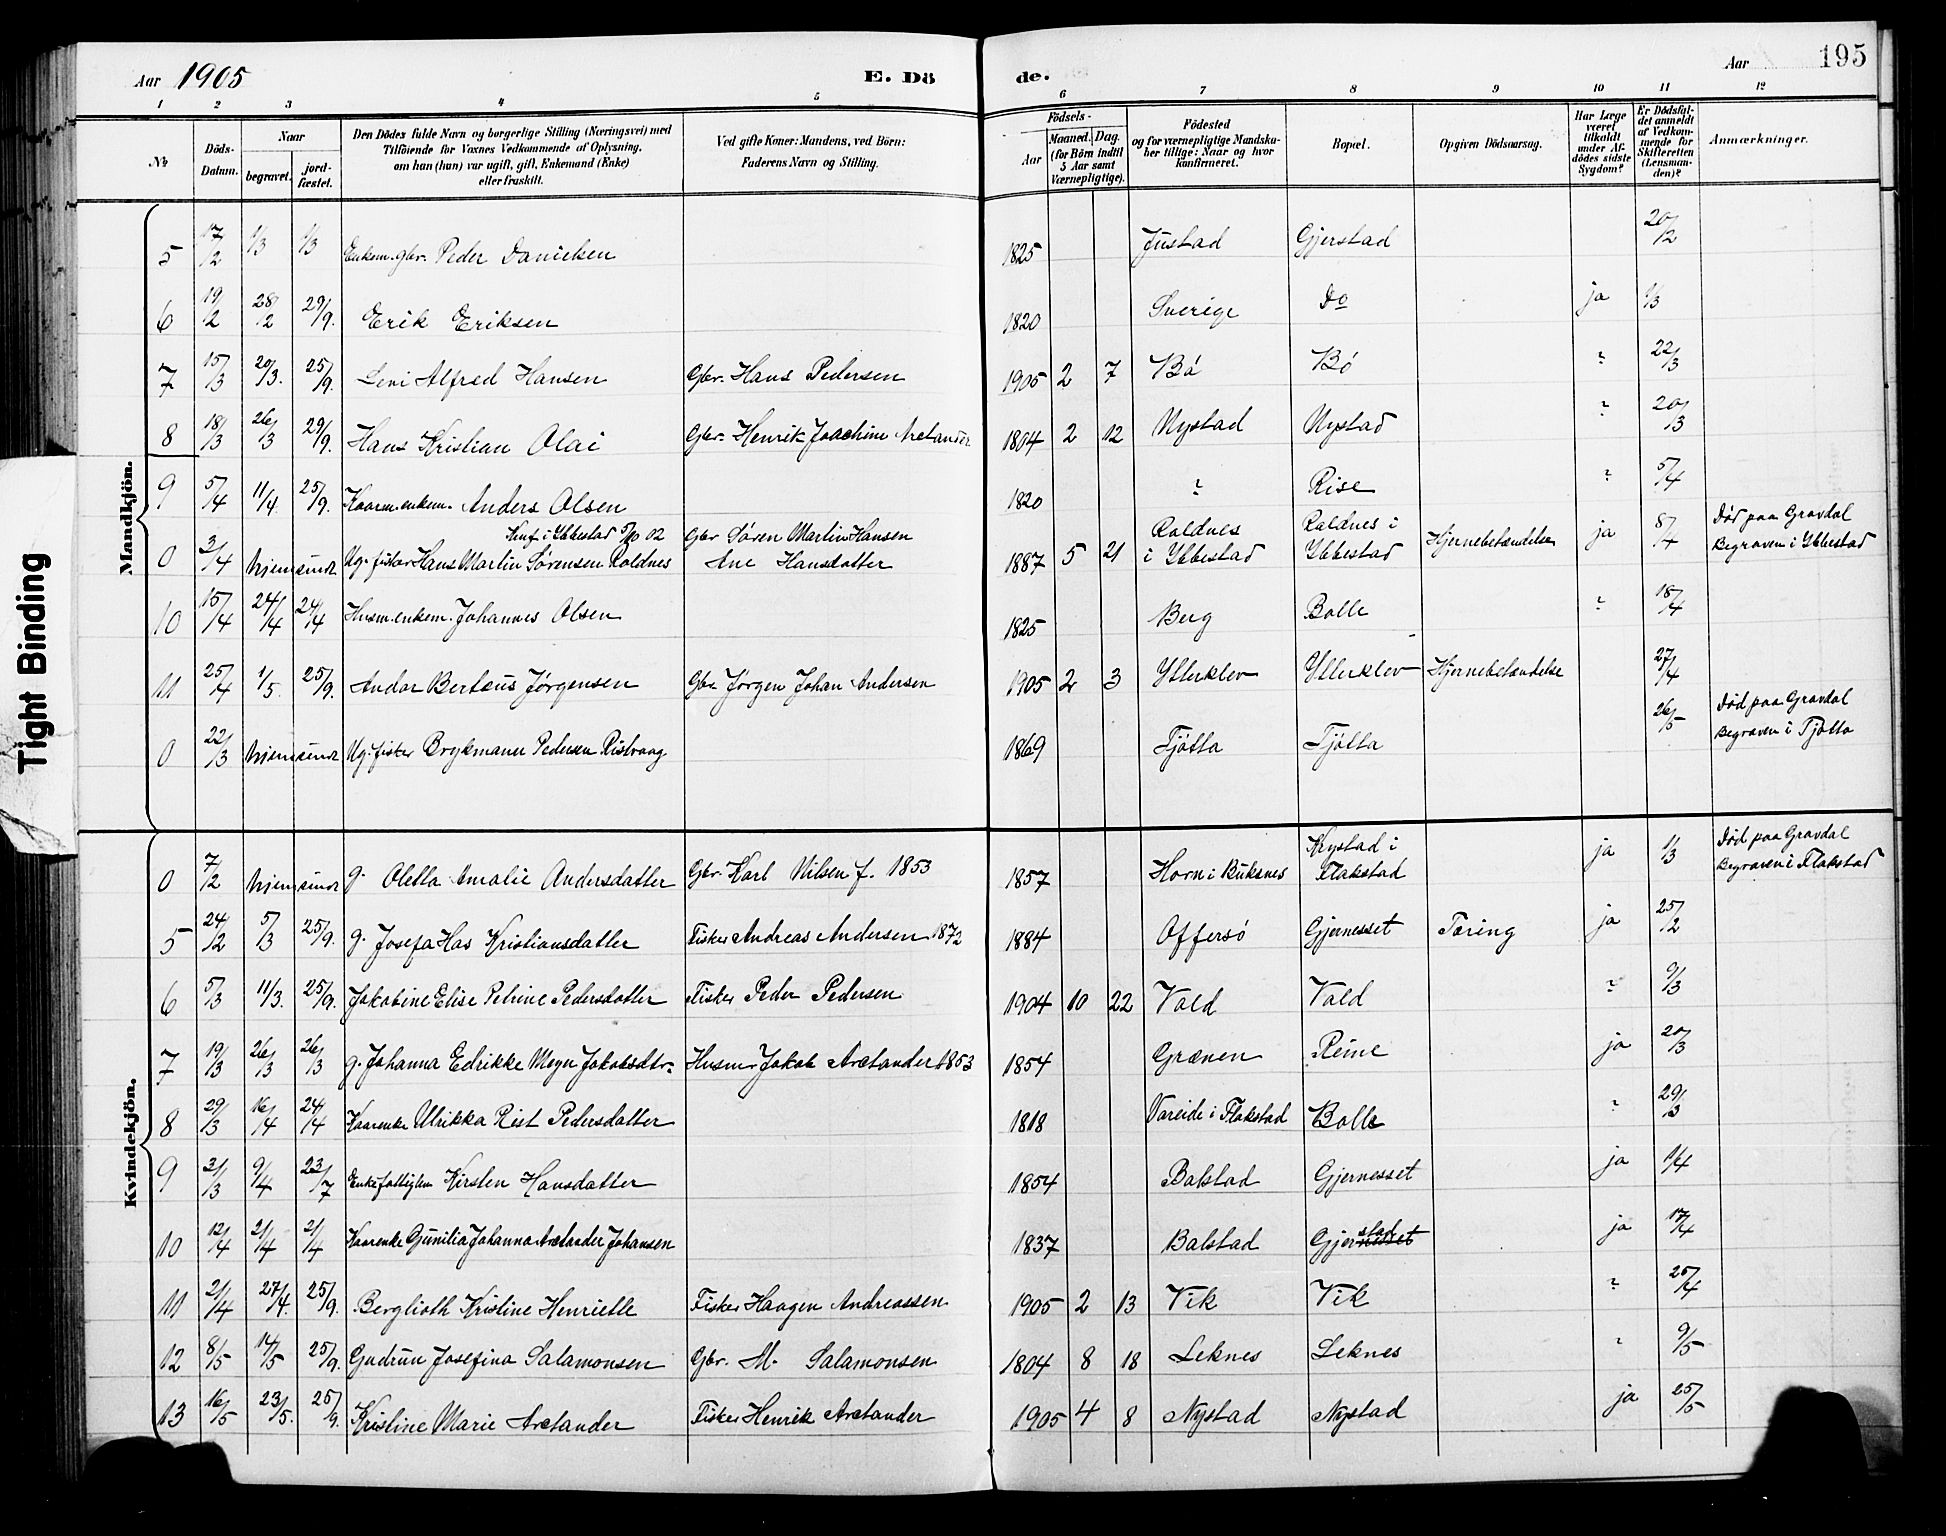 Aar 1905 E. Döde. Aar 195
1 2 3 4 5 6 7 8 9 10 11 12
№ Döds-Datum. Naar begravet. jordfæstet. Den Dödes fulde Navn og borgerlige Stilling (Næringsvei) med Tilföiende for Voxnes Vedkommende af Oplysning, om han (hun) var ugift, gift, Enkemand (Enke) eller fraskilt. Ved gifte Koner: Mandens, ved Börn: Faderens Navn og Stilling. Födsels- Aar Maaned. Dag. (for Börn indtil 5 Aar samt Værnepligtige). Födested og for værnepligtige Mandskaber tillige: Naar og hvor konfirmeret. Bopæl. Opgiven Dödsaarsag. Har Læge været tilkaldt under Afdödes sidste Sygdom? Er Dödsfaldet anmeldt af Vedkommende for Skifteretten (Lensmanden)? Anmærkninger.
Mandkjön.
5 17/2 1/3 1/3 Enkem. gbr. Peder Danielsen 1825 Justad Gjerstad 20/2
6 19/2 28/2 29/9. Erik Eriksen 1820 Sverige Do ja 1/3
7 15/3 20/3. 25/9. Levi Alfred Hansen Gbr. Hans Pedersen 1905 2 7 Bö Bö ? 22/3
8 18/3 26/3 29/9. Hans Kristian Olai Gbr. Henrik Joachim Arctander 1804 2 12 Nystad Nystad ? 20/3
9 5/4 11/4. 25/9. Kaarm. enkem. Anders Olsen 1820 ? Rise ? 5/4
Konf i Ybbestad 5/10 02 Gbr Søren Martin Hansen Roldnes Roldnes i Død paa Gravdal
0 3/4 hjemsendt Ug. fisker Hans Martin Sørensen Roldnes Ane Hansdatter 1887 5 21 i Ybbestad Ybbestad Hjernebetændelse ja 8/4 Begraven i Ybbestad
10 15/4 24/4 24/4 Husm. enkem. Johannes Olsen 1825 Berg Bolle ? 18/4
11 25/4 1/5. 25/9. Andor Berteus Jørgensen Gbr Jørgen Johan Andersen 1905 2 3 Ytterklev Ytterklev Hjernebetændelse 27/4
Død paa Gravdal
0 22/3 hjemsendt Ug. fisker Brykmann Pedersen Ristvaag 1869 Tjøtta Tjøtta 26/5 Begraven i Tjøtta
Kvindekjön.
Død paa Gravdal
0 7/2 hjemsendt g. Oletta Amalie Andersdatter Gbr. Karl Nilsen f. 1853 1857 Horn i Buksnes Krystad i Flakstad ja 1/3 Begraven i Flakstad
5 24/2 5/3 25/9. g. Josefa Has Kristiansdatter Fisker Andreas Andersen 1872 1884 Offersö Gjernesset Tæring ja 25/2
6 5/3 11/3. 25/9. Jakobine Elise Petrine Pedersdatter Fisker Peder Pedersen 1904 10 22 Vold Vold ? 9/3
7 19/3 26/3 26/3 g. Johanna Edrikke Meyer Jakobsdtr. Husm. Jakob Arctander 1853 1854 Grænen Reine ja 20/3
8 29/3 16/4 24/4 Kaarenke Ulrikka Rist Pedersdatter 1818 Vareide i Flakstad Bolle ? 29/3
9 31/3 9/4 23/7 Enke fattiglem Kirsten Hansdatter 1854 Balstad Gjernesset ja 1/4
10 12/4 21/4 21/4 Kaarenke Gunilia Johanna Arctander Johansen 1837 Balstad Gjerstad ja 17/4
11 21/4 27/4. 25/9. Berglioth Kristine Henriette Fisker Haagen Andreassen 1905 2 13 Vik Vik ? 25/4
12 8/5 14/5 25/9. Gudrun Josefina Salamonsen Gbr. M. Salamonsen 1804 8 18 Leknes Leknes ? 9/5
13 16/5 23/5. 25/9. Kristine Marie Arctander Fisker Henrik Arctander 1905 4 8 Nystad Nystad ja 25/5
Tight Binding